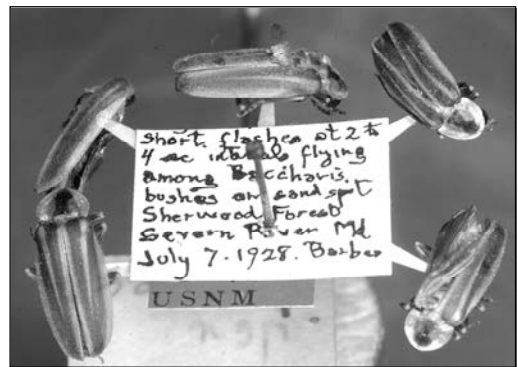 Short flashes at 2 to
4 sec intervals flying
among Baccharis
bushes on sand spit
Sherwood Forest
Severn River Md
July 7-1928. Barber
USNM